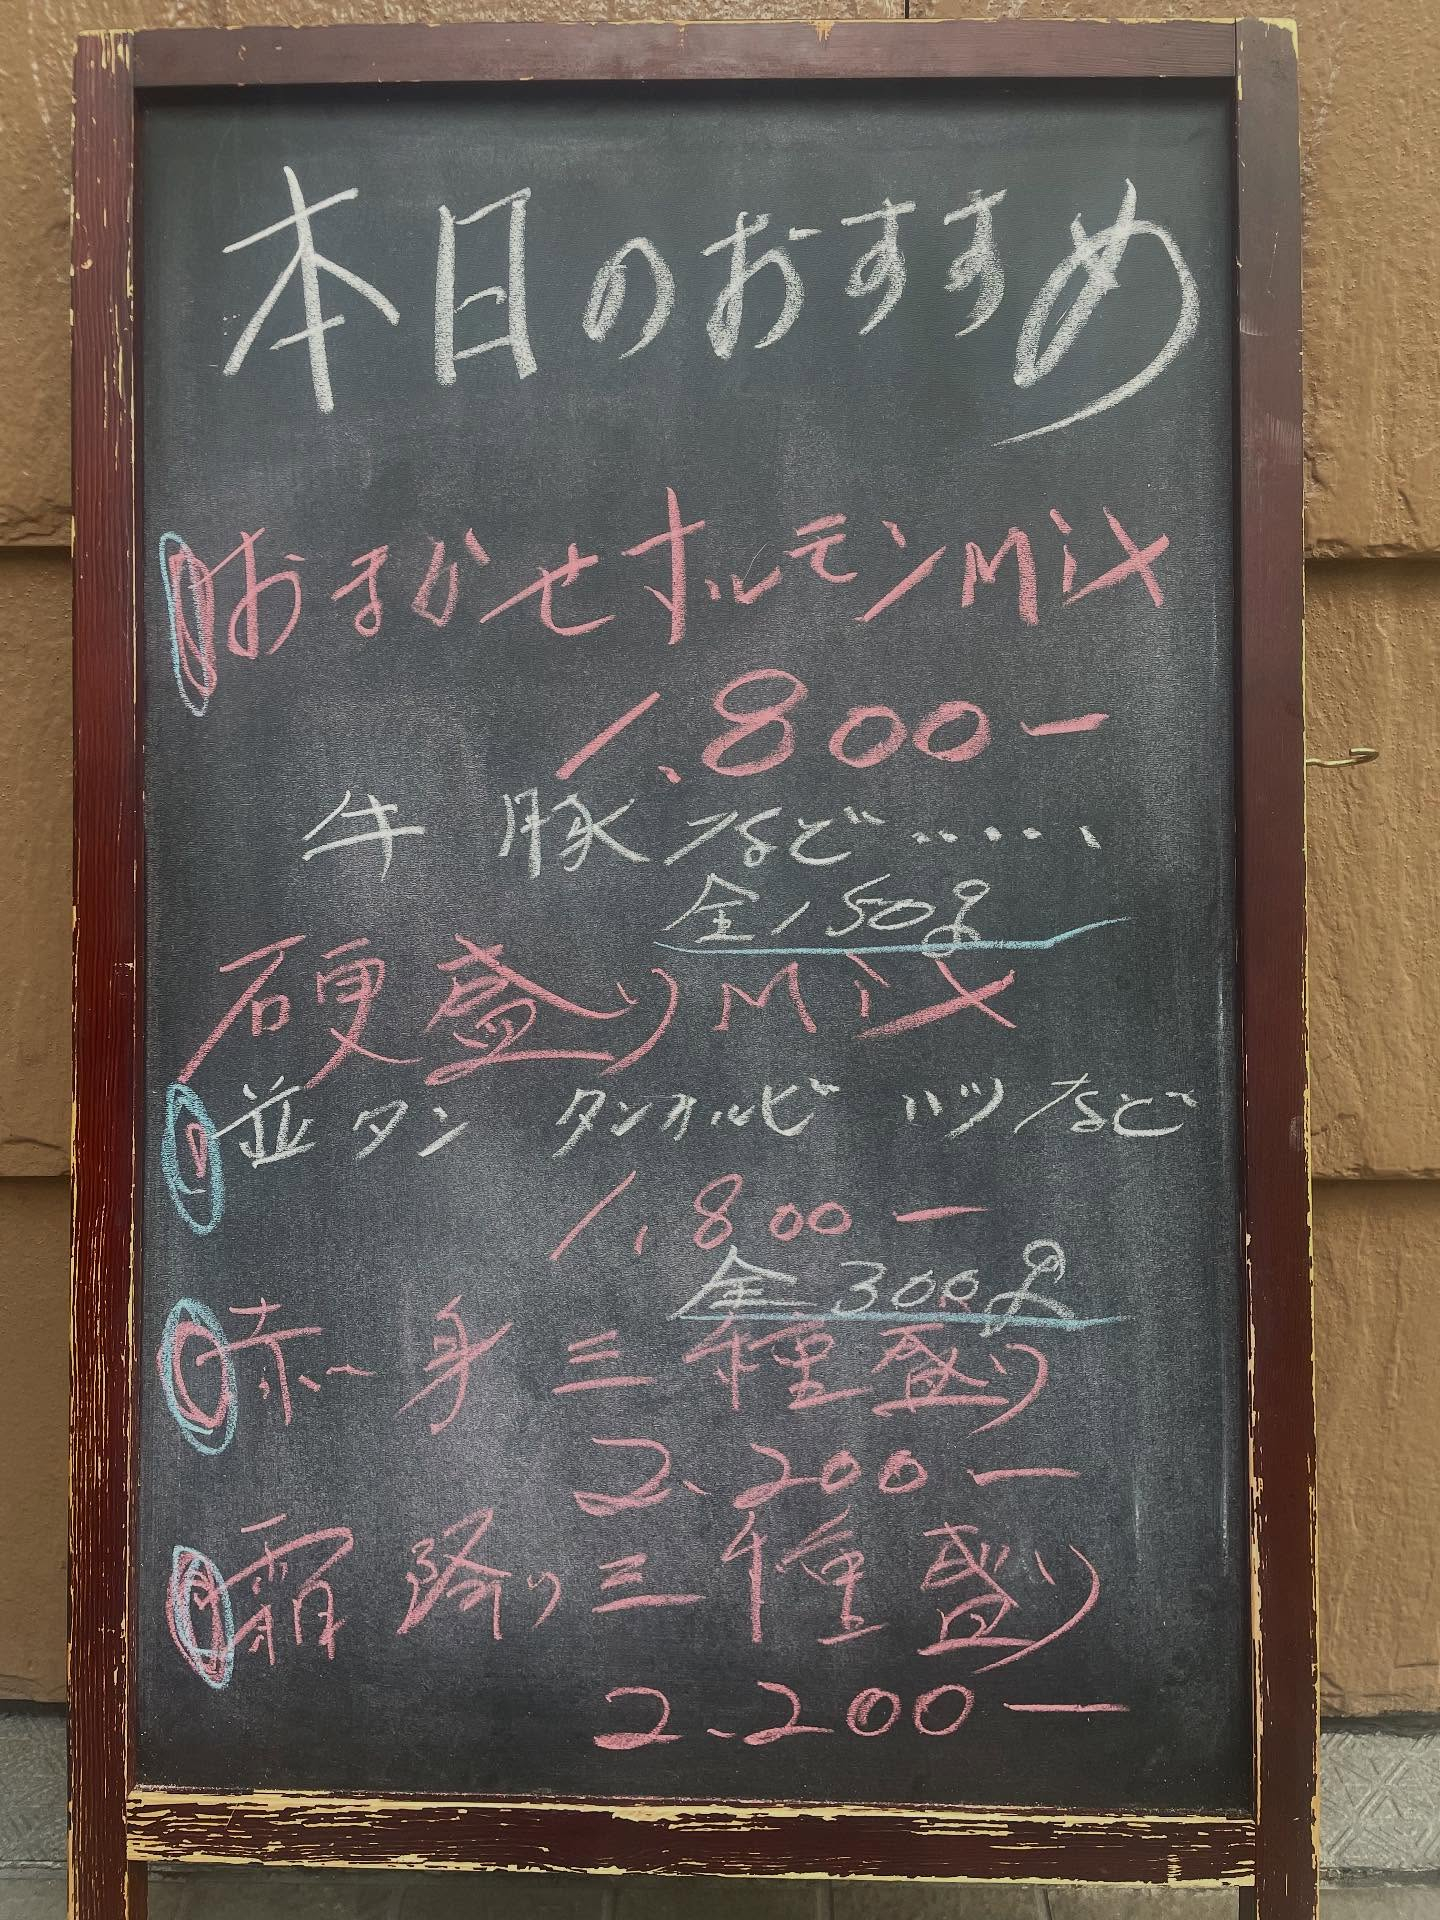 本日のおすすめ
おまかせホルモンMix
1.800ー
牛 豚 など……
全150g
硬盛りMix
並タン タンカルビ ハツなど
1.800ー
全300g
赤身三種盛り
2.200ー
霜降り三種盛り
2.200ー